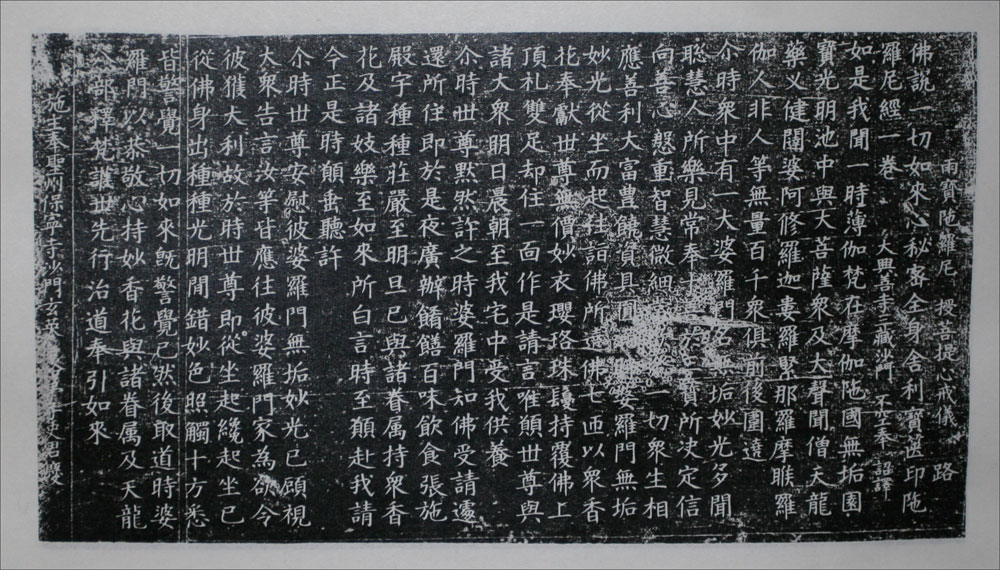 雨寶陁羅尼 授菩提心戒儀 路
佛說一切如來心秘密全身舍利寶篋印陁
羅尼經一卷 大興善寺三藏沙門 不空奉 詔譯
如是我聞一時薄伽梵在摩伽陁國無垢園
寶光明池中與大菩薩衆及大聲聞僧天龍
藥叉健闥婆阿修羅迦婁羅緊那羅摩睺羅
伽人非人等無量百千衆俱前後圍遶
尒時衆中有一大婆羅門名無垢妙光多聞
聡慧人所樂見常奉十於三寶所决定信
向善心慇重智慧微細一切衆生相
應善利大富豊饒資具圓婆羅門無垢
妙光從坐而起往詣佛所遶佛七匝以衆香
花奉獻世尊無價妙衣瓔珞珠鬘持覆佛上
頂礼雙足却住一面作是請言唯願世尊與
諸大衆明日晨朝至我宅中受我供養
尒時世尊黙然許之時婆羅門知佛受請遽
還所住即於是夜廣辦餚饍百味飲食張施
殿宇種種莊嚴至明旦已與諸眷属持衆香
花及諸妓樂至如來所白言時至願赴我請
今正是時願垂聽許
尒時世尊安慰彼婆羅門無垢妙光已顧視
大衆告言汝等皆應往彼婆羅門家為欲令
彼獲大利故於時世尊即從坐起纔起坐已
從佛身出種種光明間錯妙色照觸十方悉
皆警覺一切如來旣警覺已然後取道時婆
羅門以恭敬心持妙香花與諸眷属及天龍
八部釋梵護世先行治道奉引如來
施主奉聖州保寧寺沙門玄英